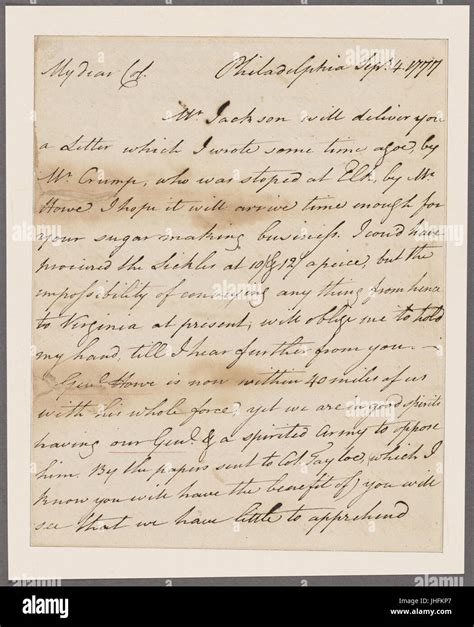 My dear Col.
Philadelphia Sepr. 4. 1777
Mr Jackson will deliver you
a Letter which I wrote some time agoe, by
Mr Crump, who was stoped at Elk, by Mr
Howe I hope it will arrive time enough for
your sugar making business. I could have
procured the Sickles at 10/ & 12/ apeice, but the
impossibility of conveying any thing from hence
to Virginia at present, will oblige me to hold
my hand, till I hear further from you. —
Genl. Howe is now within 40 miles of us
with his whole force, yet we are in good spirits
having our Genl. & a spirited Army to oppose
him. By the papers sent to Col Tayloe, which I
know you will have the benefit of, you will
see that we have little to apprehend
alamy stock photo
alamy
Image ID: JHFKP7
www.alamy.com